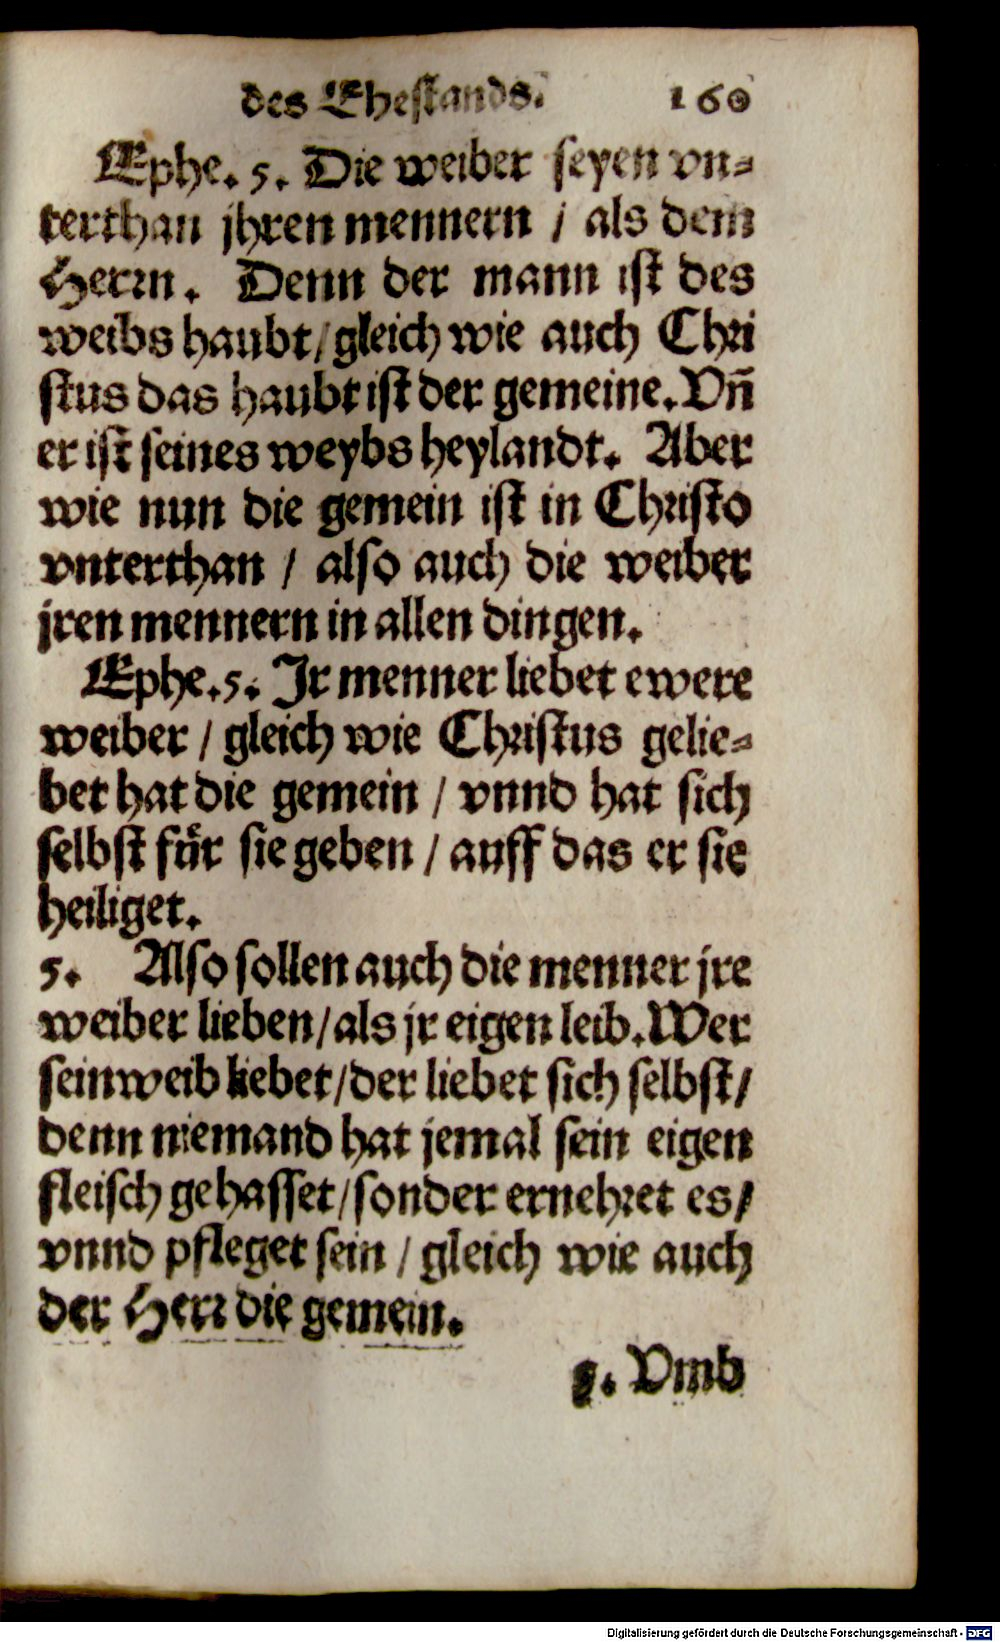 des Eheſtands. 160
Ephe. 5. Die weiber ſeyen vn⸗
terthan jhren mennern / als dem
Herrn. Denn der mann iſt des
weibs haubt / gleich wie auch Chri
ſtus das haubt iſt der gemeine. Vñ
er iſt ſeines weybs heylandt. Aber
wie nun die gemein iſt in Chriſto
vnterthan / alſo auch die weiber
jren mennern in allen dingen.
Ephe. 5. Ir menner liebet ewere
weiber / gleich wie Chriſtus gelie⸗
bet hat die gemein / vnnd hat ſich
ſelbſt fuͤr ſie geben / auff das er ſie
heiliget.
5. Alſo ſollen auch die menner jre
weiber lieben / als jr eigen leib. Wer
ſein weib liebet / der liebet ſich ſelbſt /
denn niemand hat jemal ſein eigen
fleiſch gehaſſet / ſonder ernehret es /
vnnd pfleget ſein / gleich wie auch
der Herr die gemein.
Vmb
Digitalisierung gefördert durch die Deutsche Forschungsgemeinschaft - DFG